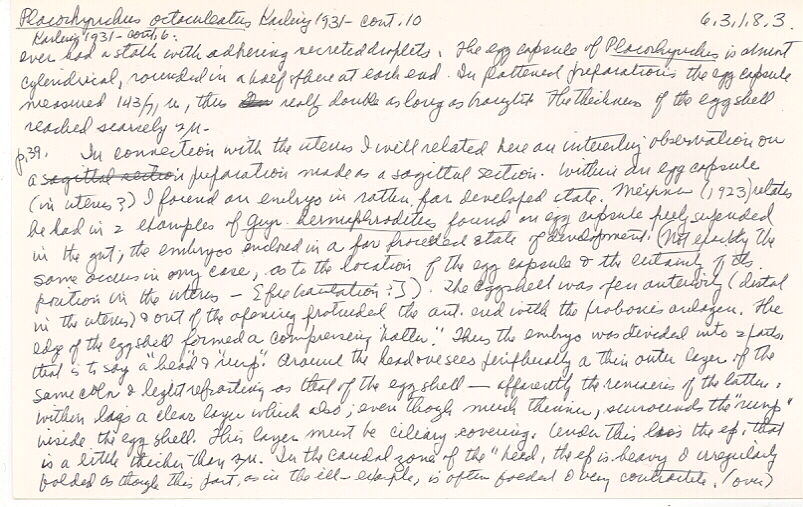 Placorhynchus octoculeatus Karling 1931 - cont. 10 6.3.1.8.3.
Karling 1931 - cont. 6:
ever had a stalk with adhering secreted droplets. The egg capsule of Placorhynchus is almost
cylindrical, rounded in a half sphere at each end. In flattened preparations the egg capsule
measured 143/71 u, thus really double as long as broad. The thickness of the eggshell
reached scarcely 2 u.
p.39. In connection with the uterus I will related here an interesting observation on
a sagittal section preparation made as a sagittal section. Within an egg capsule
(in uterus?) I found an embryo in rather far developed state. Meixner (1923) relates
he had in 2 examples of Gyr. hermaphroditus found an egg capsule freely suspended
in the gut; the embryos enclosed in a far proceeded state of development. (Not exactly the
same occurs in my case, as to the location of the egg capsule & the certainty of its
position in the uterus - ). The eggshell was open anteriorly (distal
in the uterus) & out of the opening protruded the ant. end with the proboscis anlagen. The
edge of the eggshell formed a compressing "halter." Thus the embryo was divided into 2 parts,
that is to say a "head" & "rump". Around the head one sees peripherally a thin outer layer of the
same color & light refracting as that of the eggshell — apparently the remains of the latter.
Within lays a clear layer which also, even though much thinner, surrounds the "rump"
inside the egg shell. This layer must be ciliary covering. Under this lies the ep. that
is a little thicker than 2 u. In the caudal zone of the "head, the ep is heavy & irregularly
folded as though this part, as in the ill- example, is often folded & very contractile. (over)